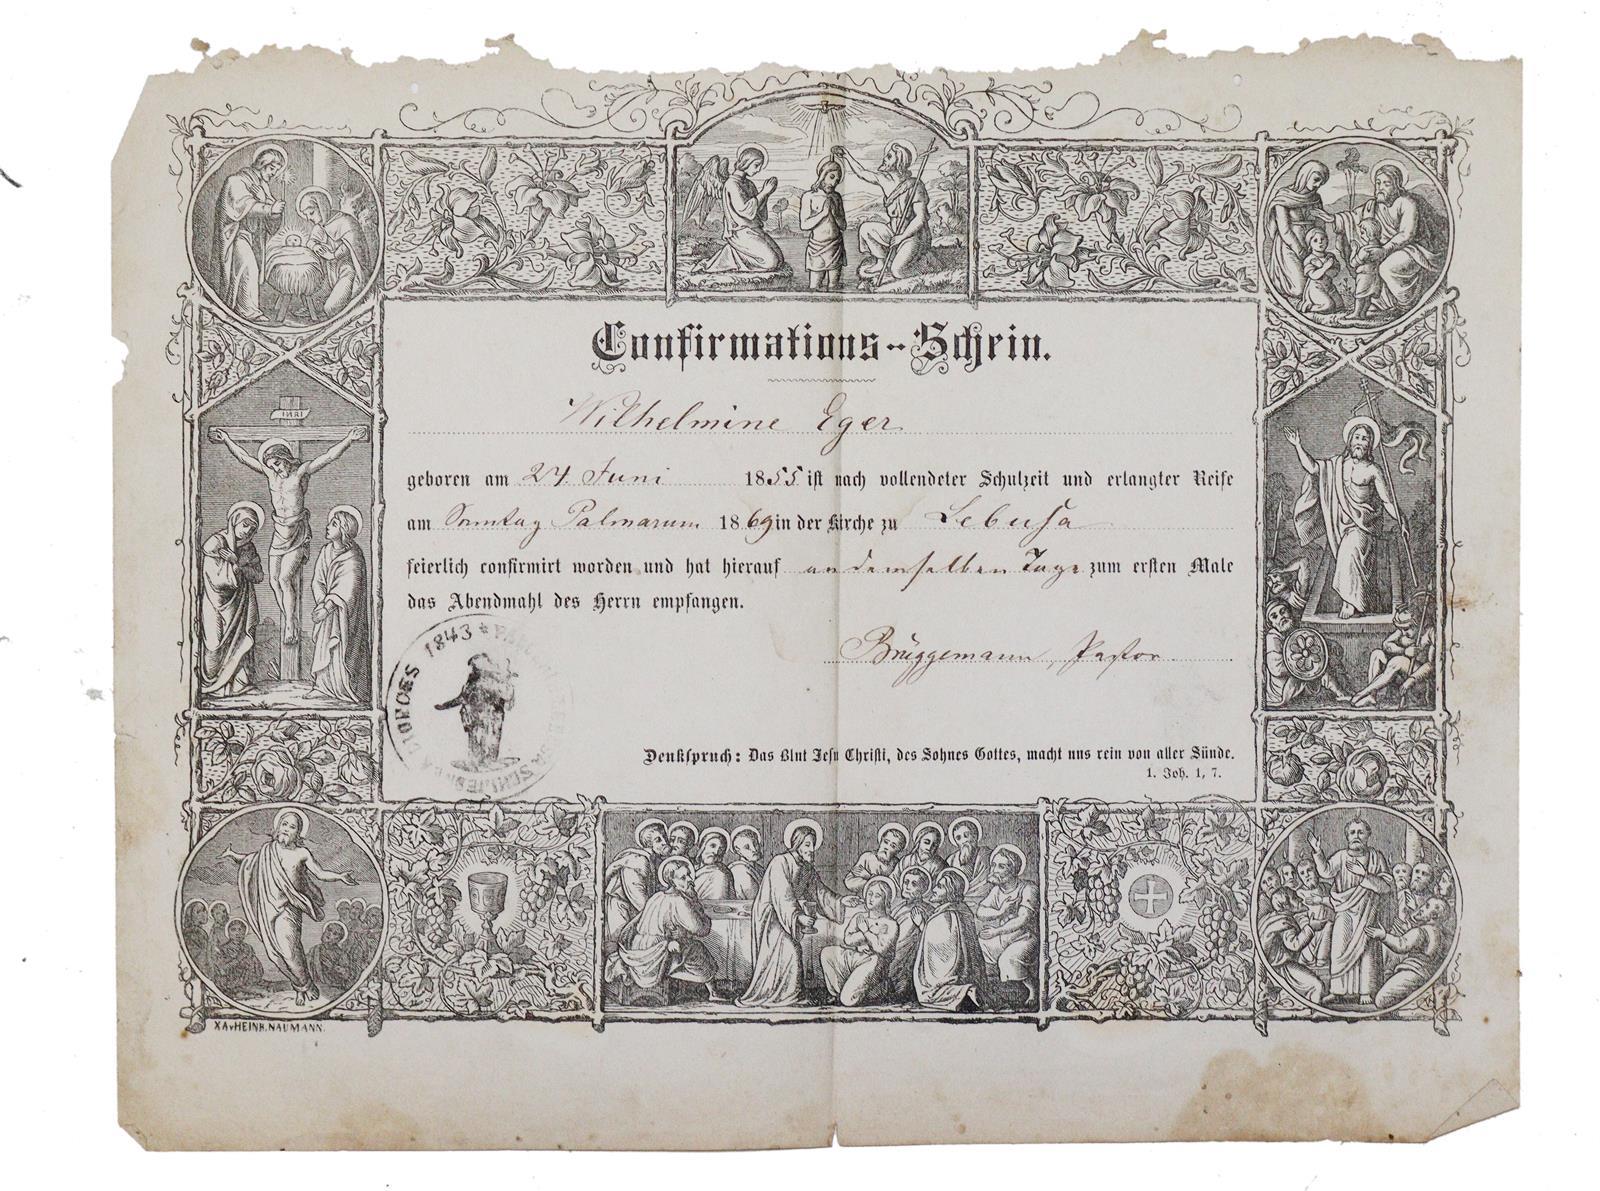 INRI
Confirmations-Schein.
Wilhelmine Eger
geboren am 24 Juni 1855 ist nach vollendeter Schulzeit und erlangter Reife
am Sonntag Palmarum 1869 in der Kirche zu Lebusa
feierlich confirmirt worden und hat hierauf an demselben Tage zum ersten Male
das Abendmahl des Herrn empfangen.
Brüggemann, Pastor
DIOECES 1843
Denkspruch: Das Blut Jesu Christi, des Sohnes Gottes, macht uns rein von aller Sünde.
1. Joh. 1, 7.
XA v HEINR. NAUMANN.